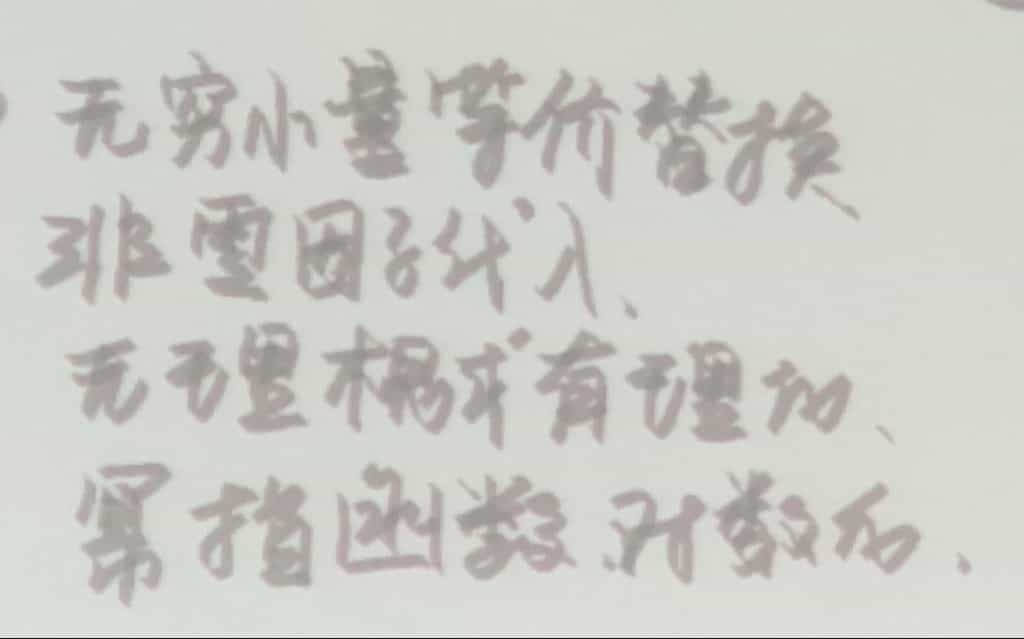 无穷小量等价替换、
非零因子代入、
无理根式有理化、
幂指函数对数化、